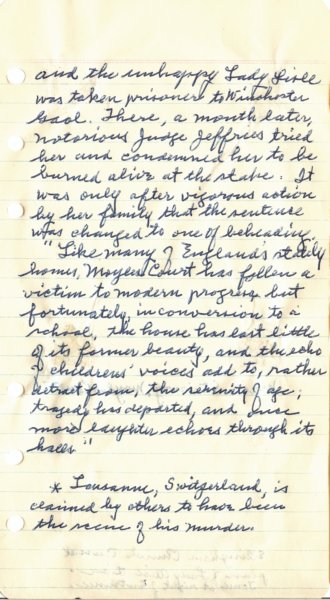 and the unhappy Lady Lisle
was taken prisoner to Winchester
Gaol. There, a month later,
notorious Judge Jeffries tried
her and condemned her to be
burned alive at the stake. It
was only after vigorous action
by her family that the sentence
was changed to one of beheading.
"Like many of England's stately
homes, Moyles Court has fallen a
victim to modern progress but
fortunately, in conversion to a
school, the house has lost little
of its former beauty, and the echo
of childrens' voices add to, rather
detract from, the serenity of age;
tragedy has departed, and once
more laughter echoes through its
halls."
* Lousanne, Switzerland, is
claimed by others to have been
the scene of his murder.